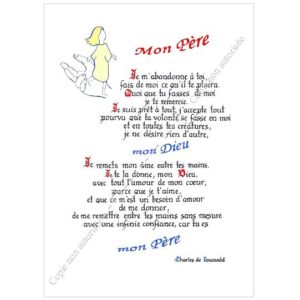 Mon Père
Je m'abandonne à toi,
fais de moi ce qu'il te plaira.
Quoi que tu fasses de moi
je te remercie.
Je suis prêt à tout, j'accepte tout
pourvu que ta volonté se fasse en moi
et en toutes tes créatures,
je ne désire rien d'autre,
mon Dieu
Je remets mon âme entre tes mains.
Je te la donne, mon Dieu,
avec tout l'amour de mon cœur,
parce que je t'aime,
et que ce m'est un besoin d'amour
de me donner,
de me remettre entre tes mains sans mesure
avec une infinie confiance, car tu es
mon Père
Charles de Foucauld
Copie non autorisée
Copie non autorisée